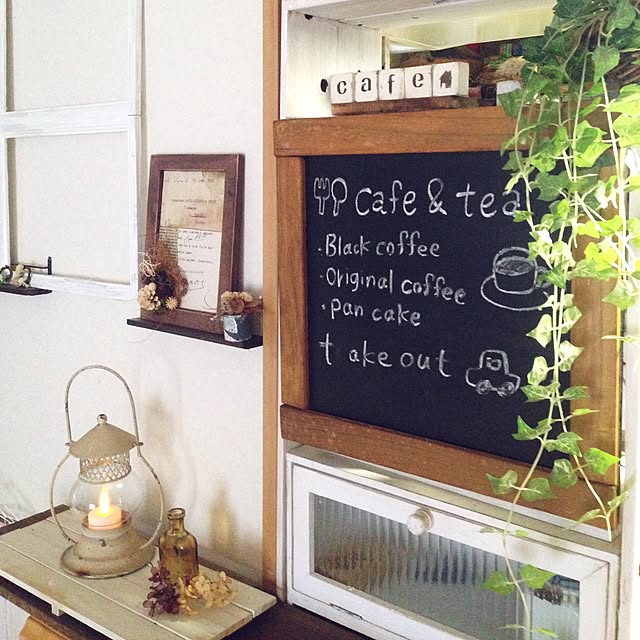 cafe
cafe & tea
・Black coffee
・Original coffee
・pan cake
take out